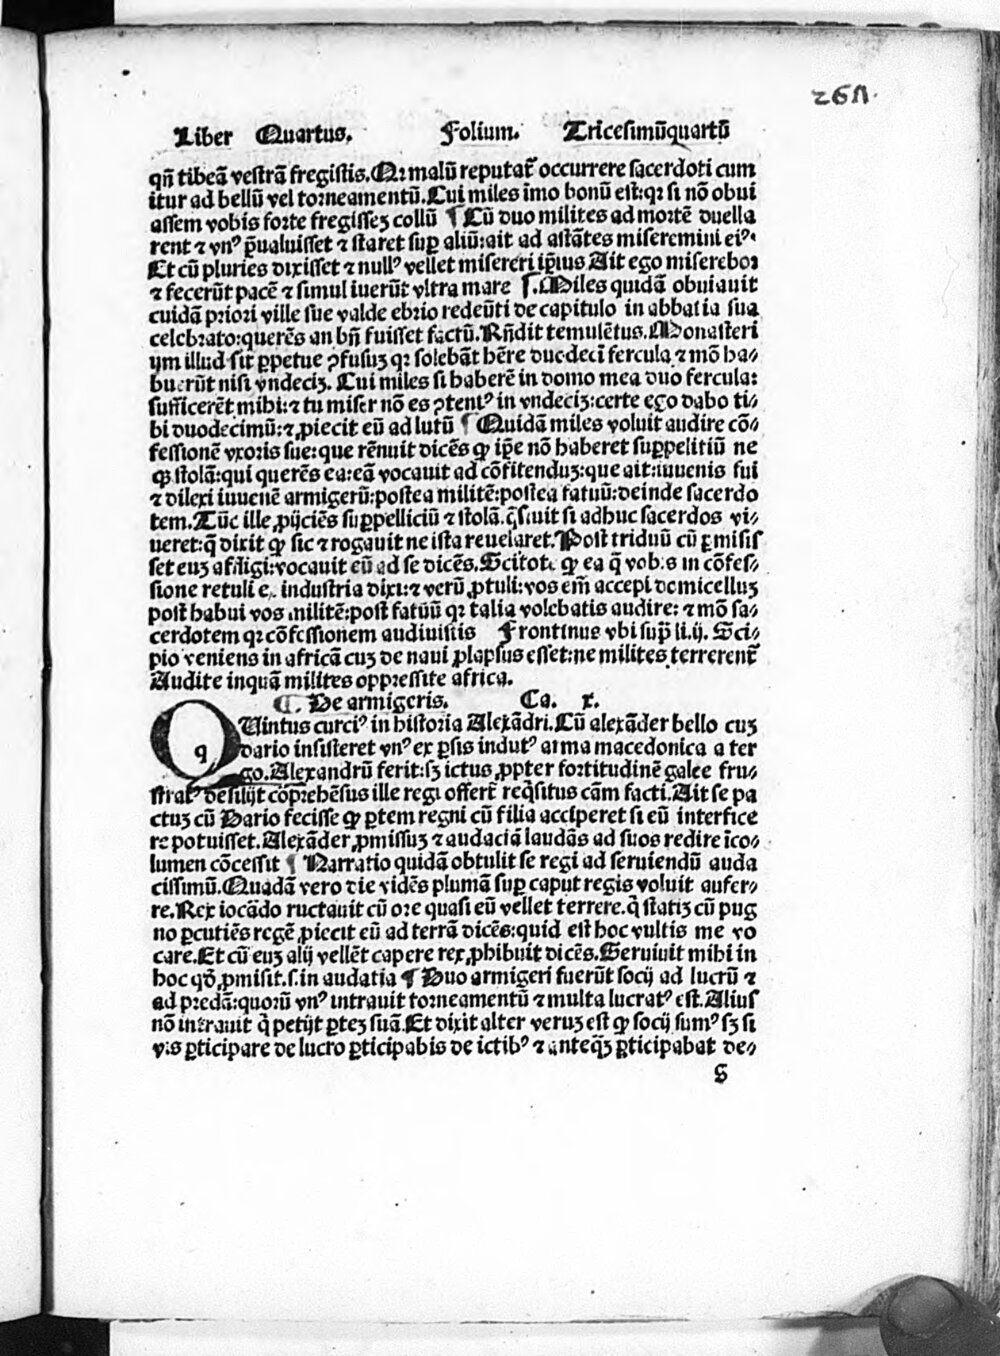 267.
Liber Quartus. Folium. Tricesimūquartū
qñ tibeā vestrā fregistis. Qꝛ malū reputat᷑ occurrere sacerdoti cum
itur ad bellū vel torneamentū. Cui miles imo bonū est: qꝛ si nō obui
assem vobis forte fregissez collū ¶ Cū duo milites ad mortē duella
rent ⁊ vnꝰ p̄ualuisset ⁊ staret suꝑ aliū: ait ad astātes miseremini eiꝰ.
Et cū pluries dixisset ⁊ nullꝰ vellet misereri ip̄ius Ait ego miserebor
⁊ fecerūt pacē ⁊ simul iuerūt vltra mare ¶ Miles quidā obuiauit
cuidā priori ville sue valde ebrio redeūti de capitulo in abbatia sua
celebrato: querēs an bn̄ fuisset factū. Rn̄dit temulētus. Monasteri
ijm illud sit ꝑpetue ꝯfusuꝫ qꝛ solebāt hēre duodeci fercula ⁊ mō ha⸗
buerūt nisi vndeciꝫ. Cui miles si haberē in domo mea duo fercula:
sufficerēt mihi: ⁊ tu miser nō es ꝯtentꝰ in vndeciꝫ: certe ego dabo ti⸗
bi duodecimū: ⁊ ꝓiecit eū ad lutū ¶ Quidā miles voluit audire cō⸗
fessionē vxoris sue: que rēnuit dicēs ꝙ ip̄e nō haberet suꝑpelitiū ne
qꝫ stolā: qui querēs ea: eā vocauit ad cōfitenduꝫ: que ait: iuuenis fui
⁊ dilexi iuuenē armigerū: postea militē: postea fatuū: deinde sacerdo
tem. Tūc ille ꝓijciēs suꝑpelliciū ⁊ stolā. q̄siuit si adhuc sacerdos vi⸗
ueret: q̄ dixit ꝙ sic ⁊ rogauit ne ista reuelaret. Post triduū cū ꝑmisis
set euꝫ affligi: vocauit eū ad se dicēs. Scitote ꝙ ea q̄ vobis in cōfes⸗
sione retuli ex industria dixi: ⁊ verū ꝓtuli: vos em̄ accepi domicelluꝫ
post habui vos militē: post fatuū qꝛ talia volebatis audire: ⁊ mō sa⸗
cerdotem qꝛ cōfessionem audiuistis Frontinus vbi sup̄ li. ij. Sci⸗
pio veniens in africā cuꝫ de naui ꝓlapsus esset: ne milites terrerent᷑
Audite inquā milites oppressite africa.
¶ De armigeris. Ca. x.
QUintus curciꝰ in historia Alexādri. Cū alexāder bello cuꝫ
q dario insisteret vnꝰ ex ꝑsis indutꝰ arma macedonica a ter
go. Alexandrū ferit: sꝫ ictus ꝓpter fortitudinē galee fru⸗
stratꝰ desilijt cōprehēsus ille regi offert᷑ reqͥsitus cām facti. Ait se pa
ctuꝫ cū Dario fecisse ꝙ ꝑtem regni cū filia acciperet si eū interfice
re potuisset. Alexāder ꝓmissuꝫ ⁊ audaciā laudās ad suos redire īco⸗
lumen cōcessit ¶ Narratio quidā obtulit se regi ad seruiendū auda
cissimū. Quadā vero die vidēs plumā suꝑ caput regis voluit aufer⸗
re. Rex iocādo ructauit cū ore quasi eū vellet terrere. qͥ statiꝫ cū pug
no ꝑcutiēs regē ꝓiecit eū ad terrā dicēs: quid est hoc vultis me vo
care. Et cū euꝫ alij vellēt capere rex ꝓhibuit dicēs. Seruiuit mihi in
hoc qd̄ ꝓmisit. s. in audatia ¶ Duo armigeri fuerūt socij ad lucrū ⁊
ad predā: quorū vnꝰ intrauit torneamentū ⁊ multa lucratꝰ est. Alius
nō intrauit qͥ petijt ꝑteꝫ suā. Et dixit alter veruꝫ est ꝙ socij sumꝰ sꝫ si
vis ꝑticipare de lucro ꝑticipabis de ictibꝰ ⁊ anteqꝫ̄ ꝑticipabat de⸗
S